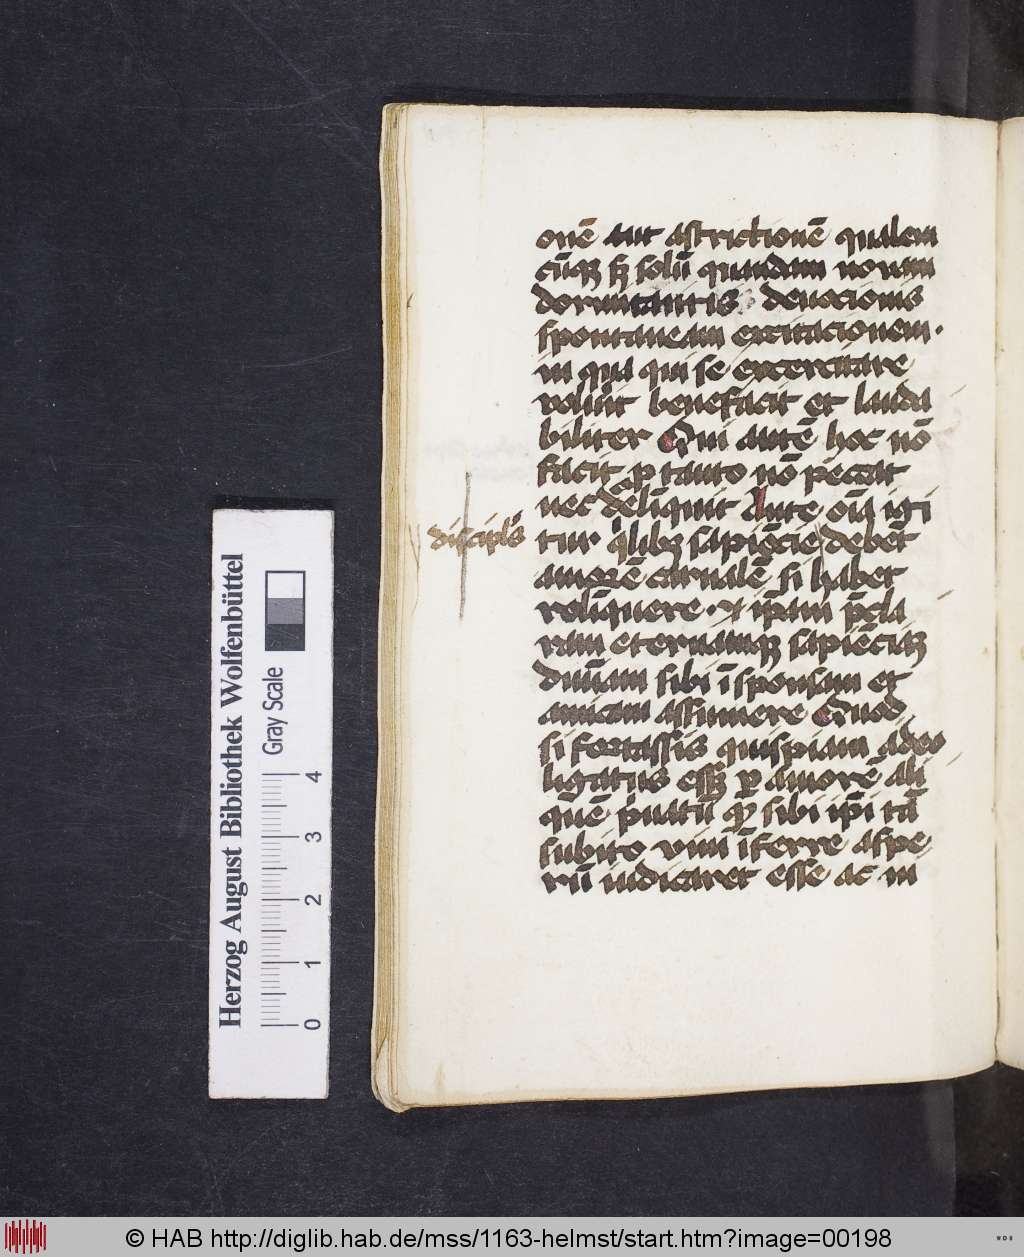 onē aut astrictionē qualem
cūqꝫ sꝫ solū quandam novam
dormitantis devocionis
spontaneam excitacionem·
in qua qui se excercitare
volūt benefacit et lauda
biliter Qui autē hoc nō
facit ꝓ tanto nō peccat
nec deliquit Ante oīa igi
discipl's
tur qͥlibꝫ sapiēcie debet
amorē carnalē si habet
relīquere · ⁊ ipam p̄cla
ram eternamqꝫ sapiēciā
divinam sibi ī sponsam et
amicam assumere Quod
si fortassis quispiam adeo
ligatus essꝫ ꝑ amorē ali
quē pͥvatū qꝫ sibi ipi tā
subito vim īferre aspe
rū iudicaret esse ac in
Herzog August Bibliothek Wolfenbüttel
Gray Scale
0 1 2 3 4
© HAB http://diglib.hab.de/mss/1163-helmst/start.htm?image=00198